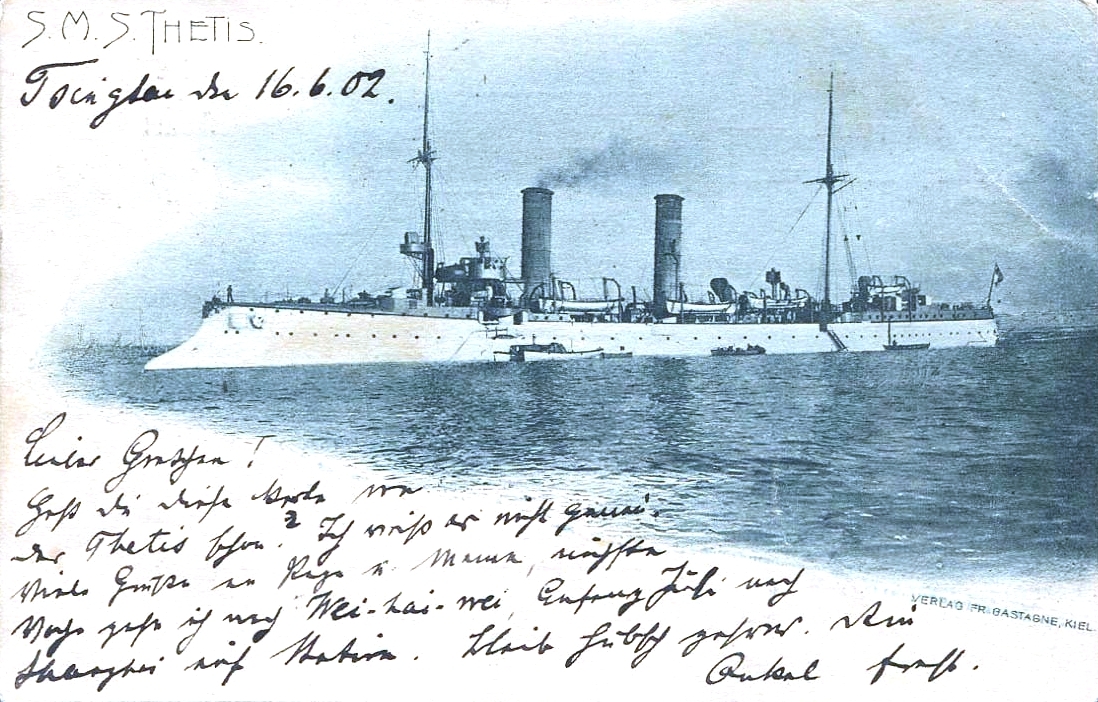 S.M.S. THETIS.
Tsingtau den 16.6.02.
Liebes Gretchen!
Hast du diese Karte von
der Thetis schon? Ich weiß es nicht genau.
Viele Grüße an Papa u. Mama, nächste
Woche gehe ich nach Wei-hai-wei, Anfang Juli nach
Shanghai auf Station. Bleib hübsch gesund. Dein
Onkel Ernst.
VERLAG FR. GASTAGNE, KIEL.